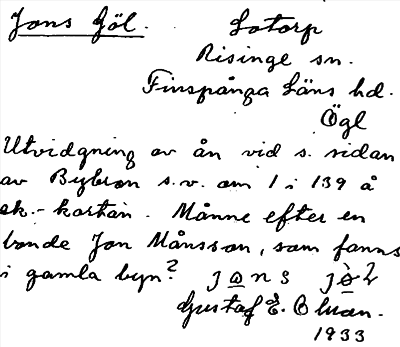 Jons Göl. Lotorp
Risinge sn.
Finspånga Läns hd.
Ögl
Utvidgning av ån vid s. sidan
av Bybron s.v. om 1 i 139 å
ek.-kartan. Månne efter en
bonde Jon Månsson, som fanns
i gamla byn?
Gustaf E. Olson.
1933